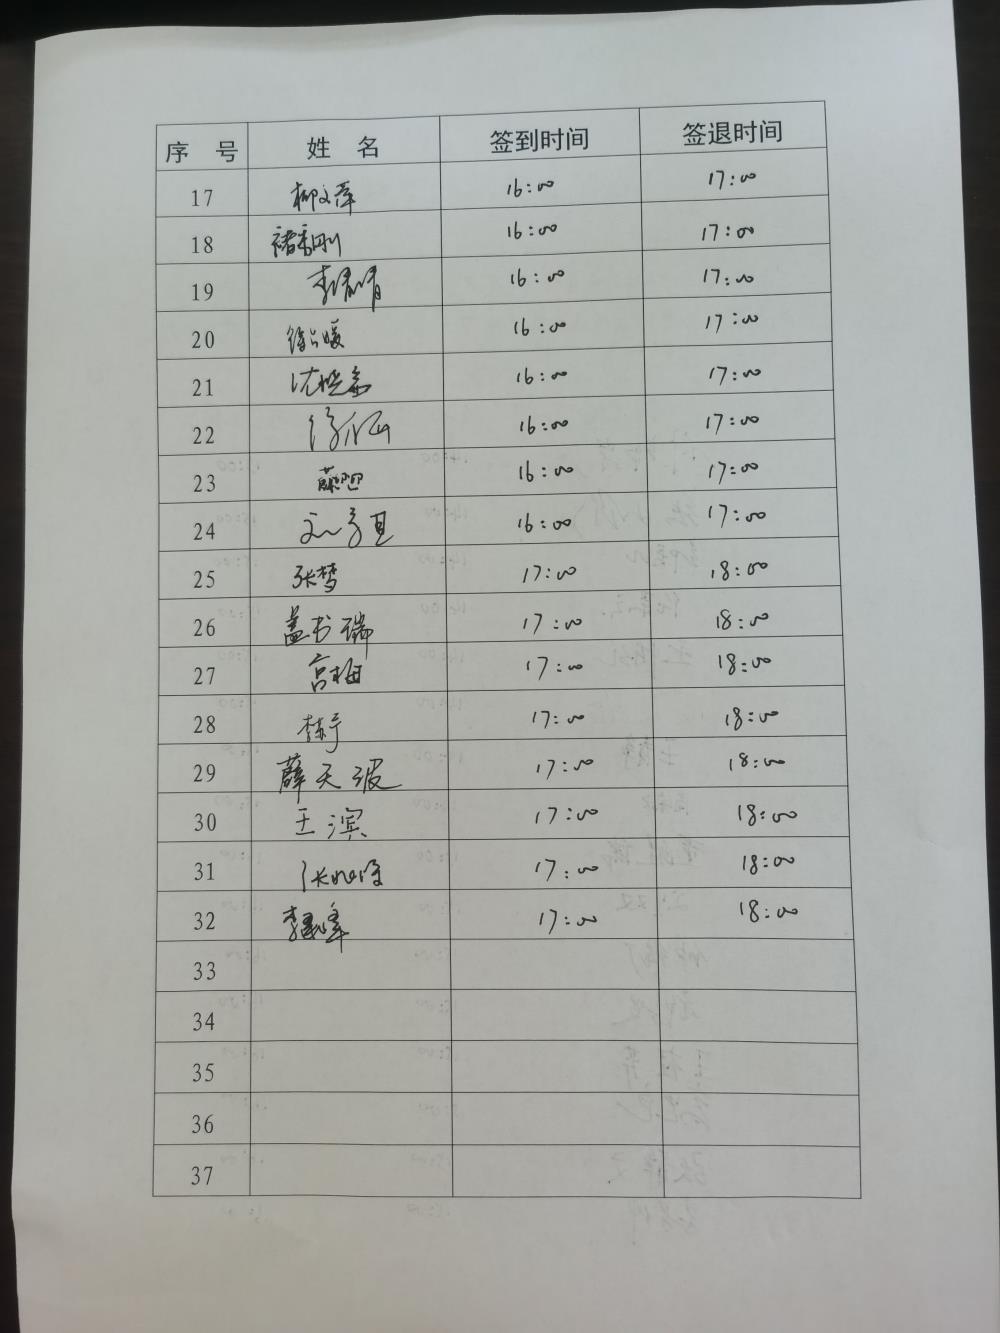 序 号 姓 名 签到时间 签退时间
17 柳文泽 16:00 17:00
18 褚秀刚 16:00 17:00
19 李倩倩 16:00 17:00
20 16:00 17:00
21 沈晓 16:00 17:00
22 徐 16:00 17:00
23 薛 16:00 17:00
24 刘 16:00 17:00
25 张梦 17:00 18:00
26 盖书瑞 17:00 18:00
27 宫梅 17:00 18:00
28 李 17:00 18:00
29 薛天波 17:00 18:00
30 王滨 17:00 18:00
31 张 17:00 18:00
32 李 峰 17:00 18:00
33
34
35
36
37